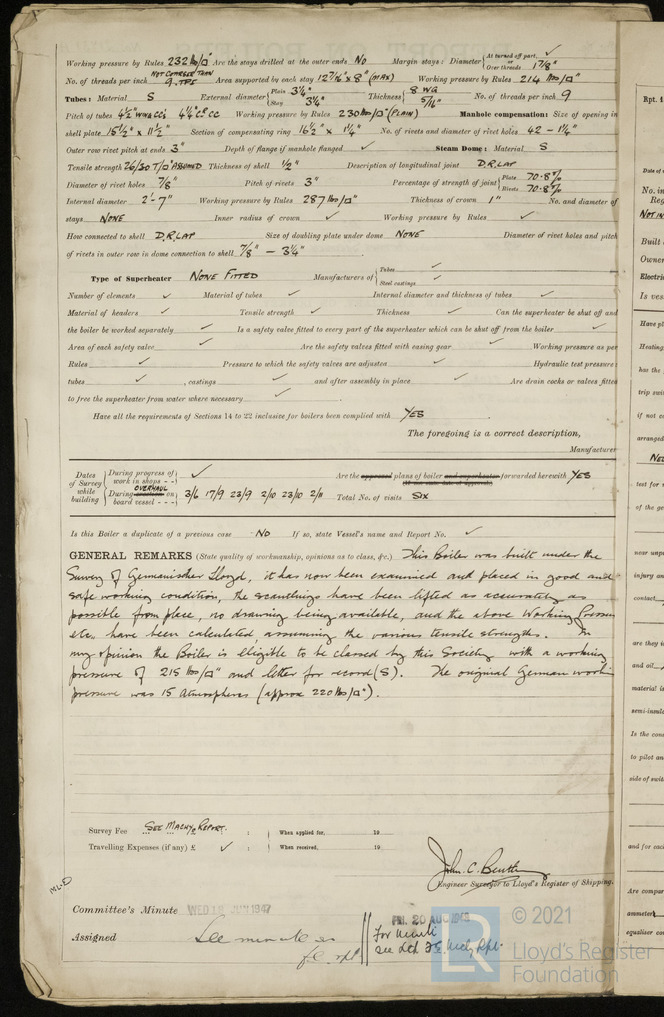 Working pressure by Rules 232 lbs/□" Are the stays drilled at the outer ends No Margin stays: Diameter { At turned off part, ✓ or Over threads 1 7/8"
No. of threads per inch NOT COARSER THAN 9 TPI Area supported by each stay 12 7/16" x 8" (MAX) Working pressure by Rules 214 lbs/□"
Tubes: Material S External diameter { Plain 3 1/4" Stay 3 1/4" Thickness { 8 WG 5/16" No. of threads per inch 9
Pitch of tubes 4 1/2" WING CC 4 1/4" CC Working pressure by Rules 230 lbs/□" (PLAIN) Manhole compensation: Size of opening in
shell plate 15 1/2" x 11 1/2" Section of compensating ring 16 1/2" x 1 1/4" No. of rivets and diameter of rivet holes 42 - 1 1/4"
Outer row rivet pitch at ends 3" Depth of flange if manhole flanged ✓ Steam Dome: Material S
Tensile strength 26/30 T/□" ASSUMED Thickness of shell 1/2" Description of longitudinal joint D.R. LAP
Diameter of rivet holes 7/8" Pitch of rivets 3" Percentage of strength of joint { Plate 70.8% Rivets 70.8%
Internal diameter 2'-7" Working pressure by Rules 287 lbs/□" Thickness of crown 1" No. and diameter of
stays NONE Inner radius of crown ✓ Working pressure by Rules ✓
How connected to shell D.R. LAP Size of doubling plate under dome NONE Diameter of rivet holes and pitch
of rivets in outer row in dome connection to shell 7/8" - 3 1/4"
Type of Superheater NONE FITTED Manufacturers of { Tubes ✓ Steel castings ✓
Number of elements ✓ Material of tubes ✓ Internal diameter and thickness of tubes ✓
Material of headers ✓ Tensile strength ✓ Thickness ✓ Can the superheater be shut off and
the boiler be worked separately ✓ Is a safety valve fitted to every part of the superheater which can be shut off from the boiler ✓
Area of each safety valve ✓ Are the safety valves fitted with easing gear ✓ Working pressure as per
Rules ✓ Pressure to which the safety valves are adjusted ✓ Hydraulic test pressure:
tubes ✓, castings ✓ and after assembly in place ✓ Are drain cocks or valves fitted
to free the superheater from water where necessary ✓
Have all the requirements of Sections 14 to 22 inclusive for boilers been complied with YES
The foregoing is a correct description,
Manufacturer
Dates of Survey while building { During progress of work in shops - - ✓ Are the approved plans of boiler and superheater forwarded herewith YES
During OVERHAUL on board vessel - - - 3/6 17/9 23/9 2/10 23/10 2/11 Total No. of visits SIX
Is this Boiler a duplicate of a previous case NO If so, state Vessel's name and Report No. ✓
GENERAL REMARKS (State quality of workmanship, opinions as to class, &c.) This Boiler was built under the
Survey of Germanischer Lloyd, it has now been examined and placed in good and
safe working condition, the scantlings have been lifted as accurately as
possible from place, no drawing being available, and the above Working Pressures
etc. have been calculated, assuming the various tensile strengths. In
my opinion the Boiler is eligible to be classed by this Society with a working
pressure of 215 lbs/□" and letter for record (S). The original German working
pressure was 15 Atmospheres (approx 220 lbs/□").
Survey Fee SEE MACHY REPORT. : : When applied for, 19
Travelling Expenses (if any) £ ✓ : : When received, 19
John. C. Bentley
Engineer Surveyor to Lloyd's Register of Shipping.
Committee's Minute WED 18 JUN 1947 FRI. 20 AUG 1948
Assigned See minute on
f.e. rpt
For Minute
see Ldn F.E. Mchy Rpt.
© 2021
LR
Lloyd's Register
Foundation
Rpt. 4
Date of
No. in
Reg
NOT IN
Built
Owner
Electric
Is ves
Have pl
Heating
has the
trip swit
if not co
arranged
test for
of the ge
near unpr
injury an
contact
are they i
and oil
material is
semi-insula
Is the cons
to pilot an
side of swit
and for eac
Are compar
ammeter
equaliser con